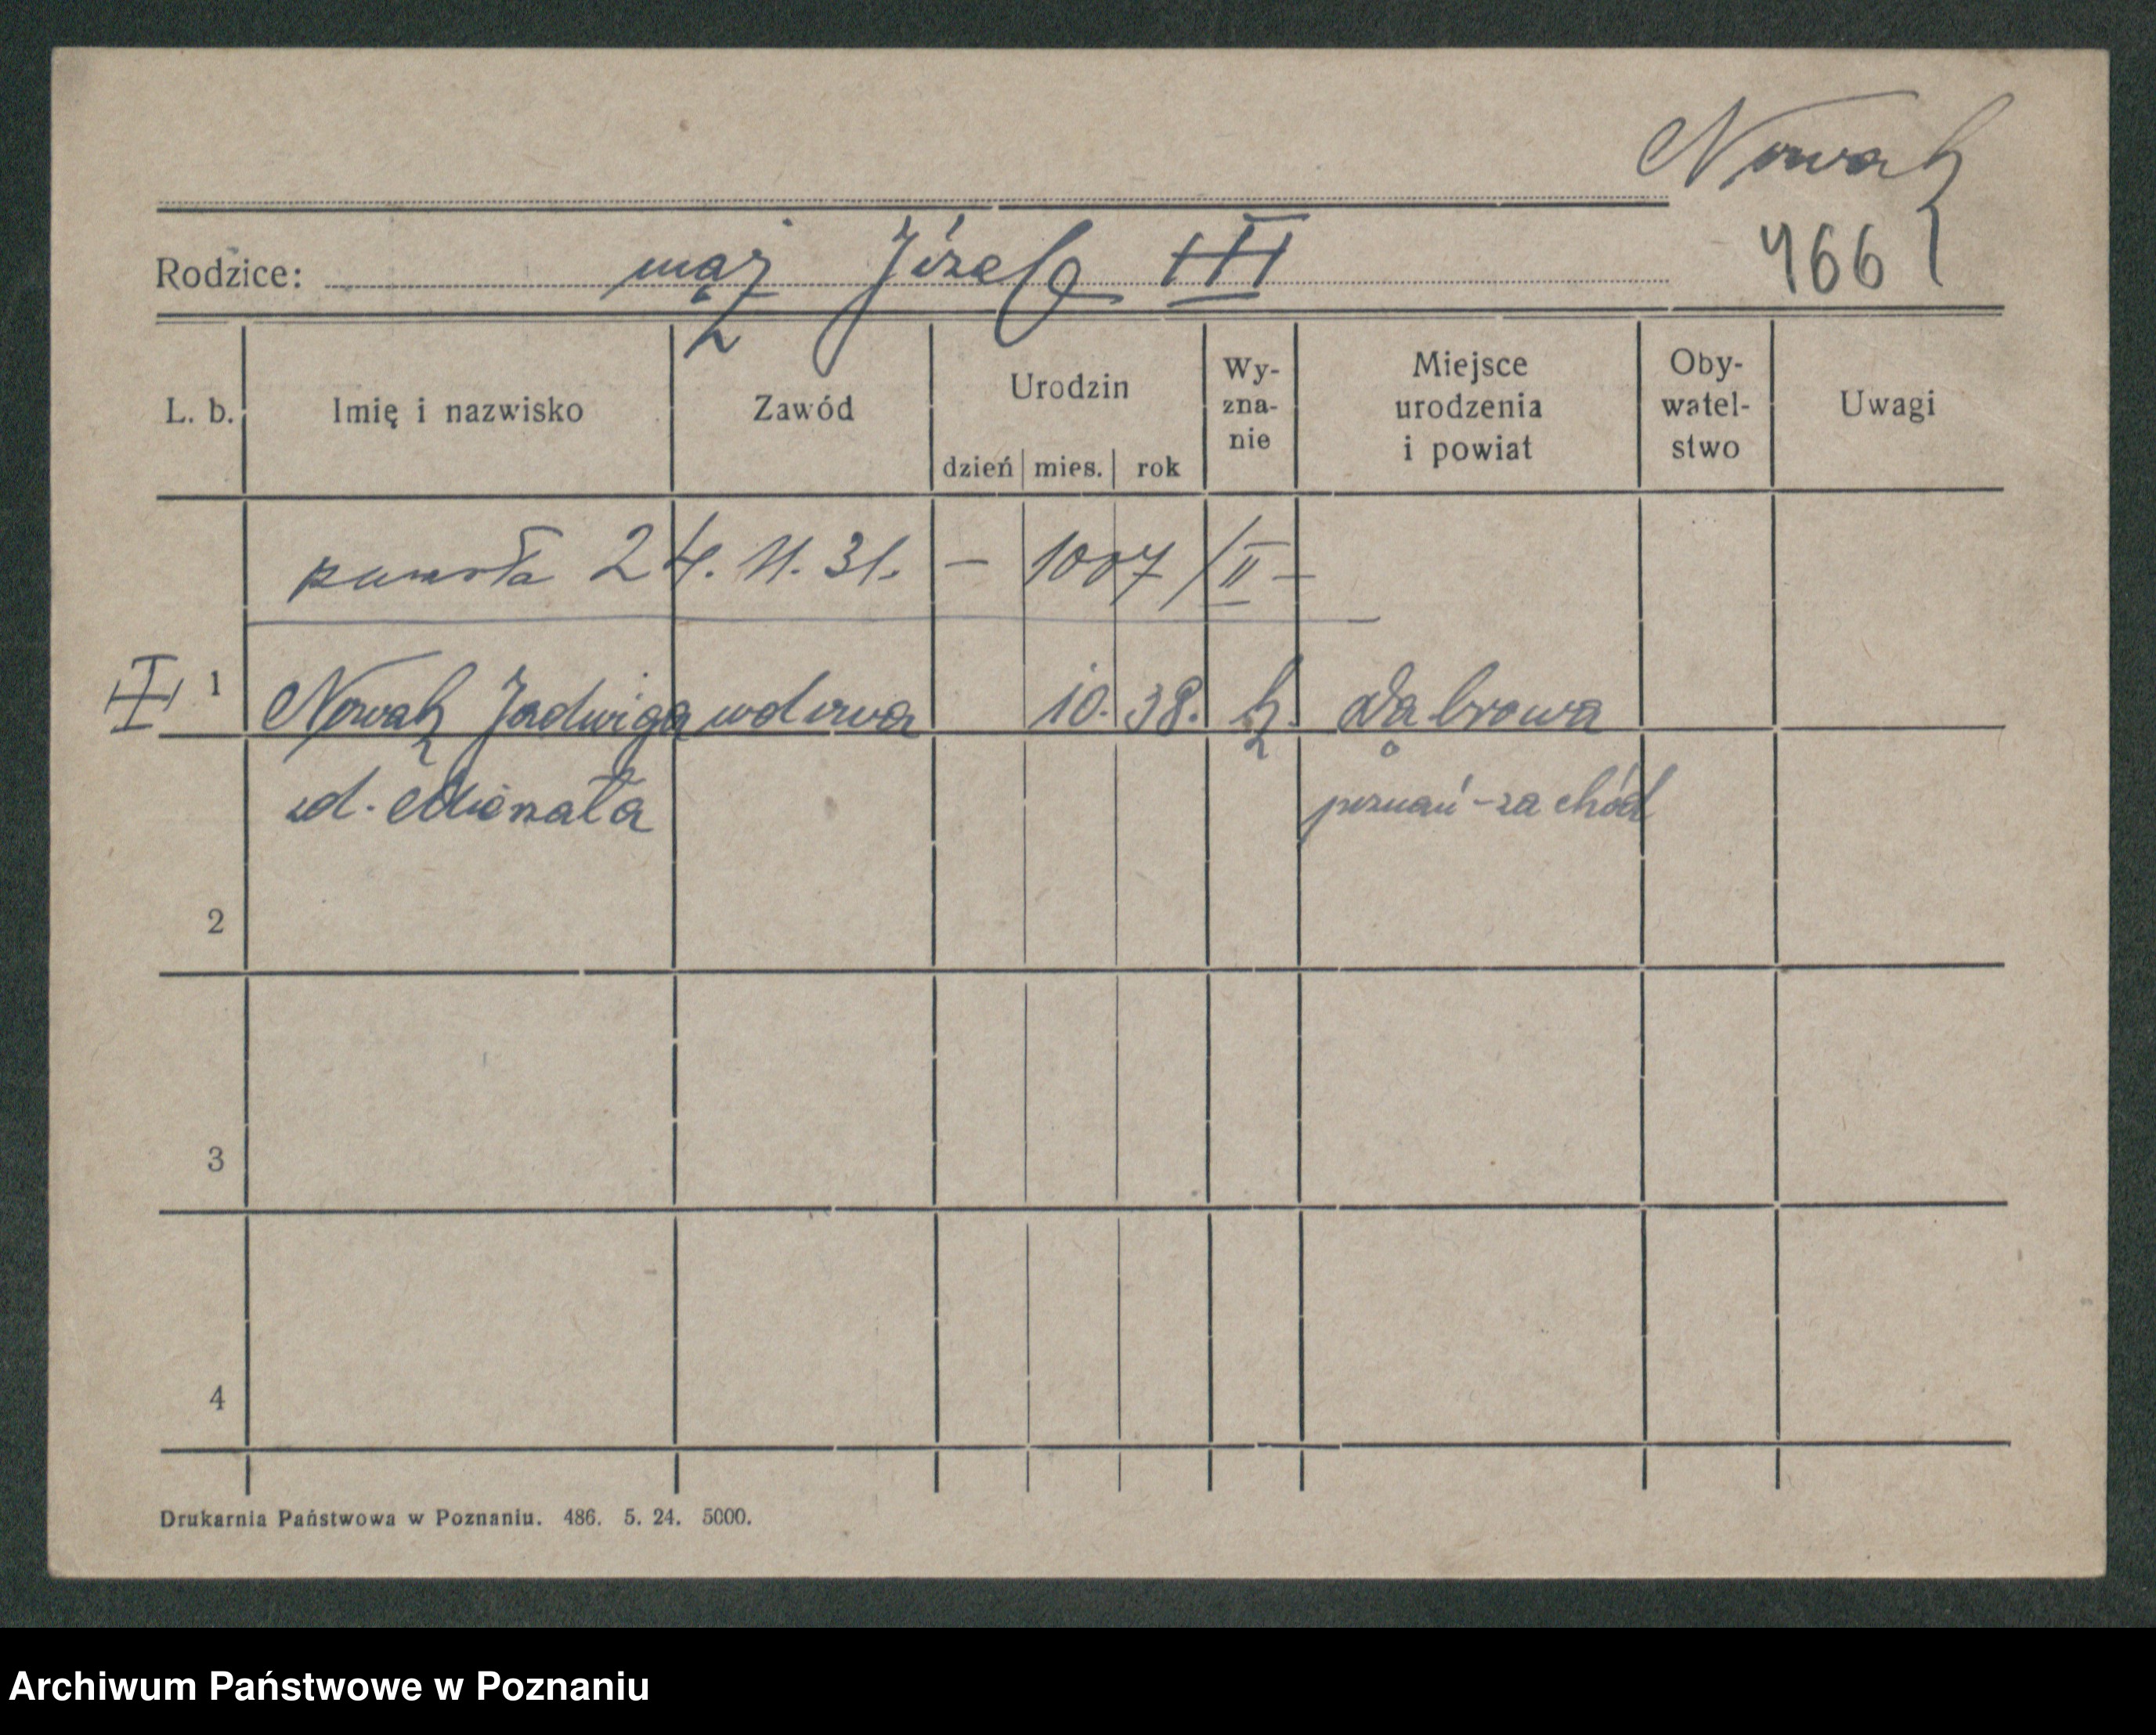 Nowak
4661
Rodzice: mąż Józef III
L. b. Imię i nazwisko Zawód Urodzin dzień mies. rok Wy-zna-nie Miejsce urodzenia i powiat Oby-watel-stwo Uwagi
zmarła 24. 11. 31. – 1007/II –
I 1 Nowak Jadwiga wdowa 10. 38. k. Dąbrowa
zd. poznań-zachód
2
3
4
Drukarnia Państwowa w Poznaniu. 486. 5. 24. 5000.
Archiwum Państwowe w Poznaniu